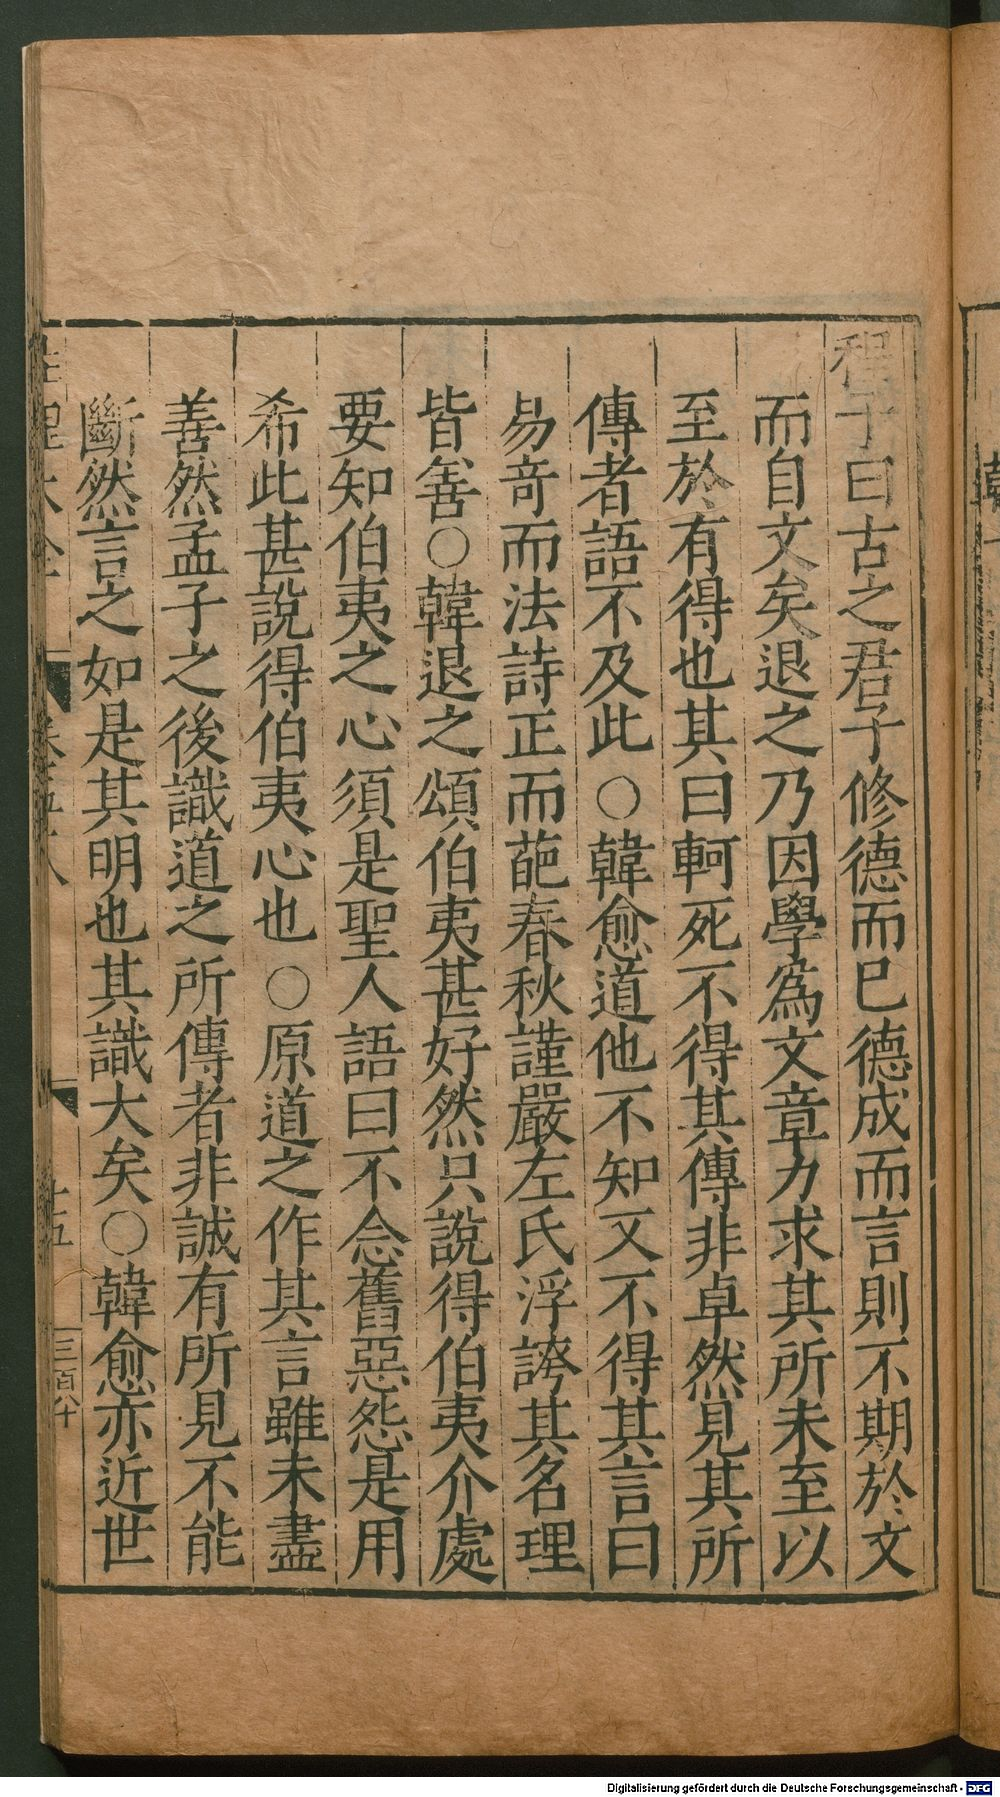 程子曰古之君子修德而已德成而言則不期於文
而自文矣退之乃因學爲文章力求其所未至以
至於有得也其曰軻死不得其傳非卓然見其所
傳者語不及此○韓愈道他不知又不得其言曰
易奇而法詩正而葩春秋謹嚴左氏浮誇其名理
皆善○韓退之頌伯夷甚好然只說得伯夷介處
要知伯夷之心須是聖人語曰不念舊惡怨是用
希此甚說得伯夷心也○原道之作其言雖未盡
善然孟子之後識道之所傳者非誠有所見不能
斷然言之如是其明也其識大矣○韓愈亦近世
三百八十
Digitalisierung gefördert durch die Deutsche Forschungsgemeinschaft - DFG